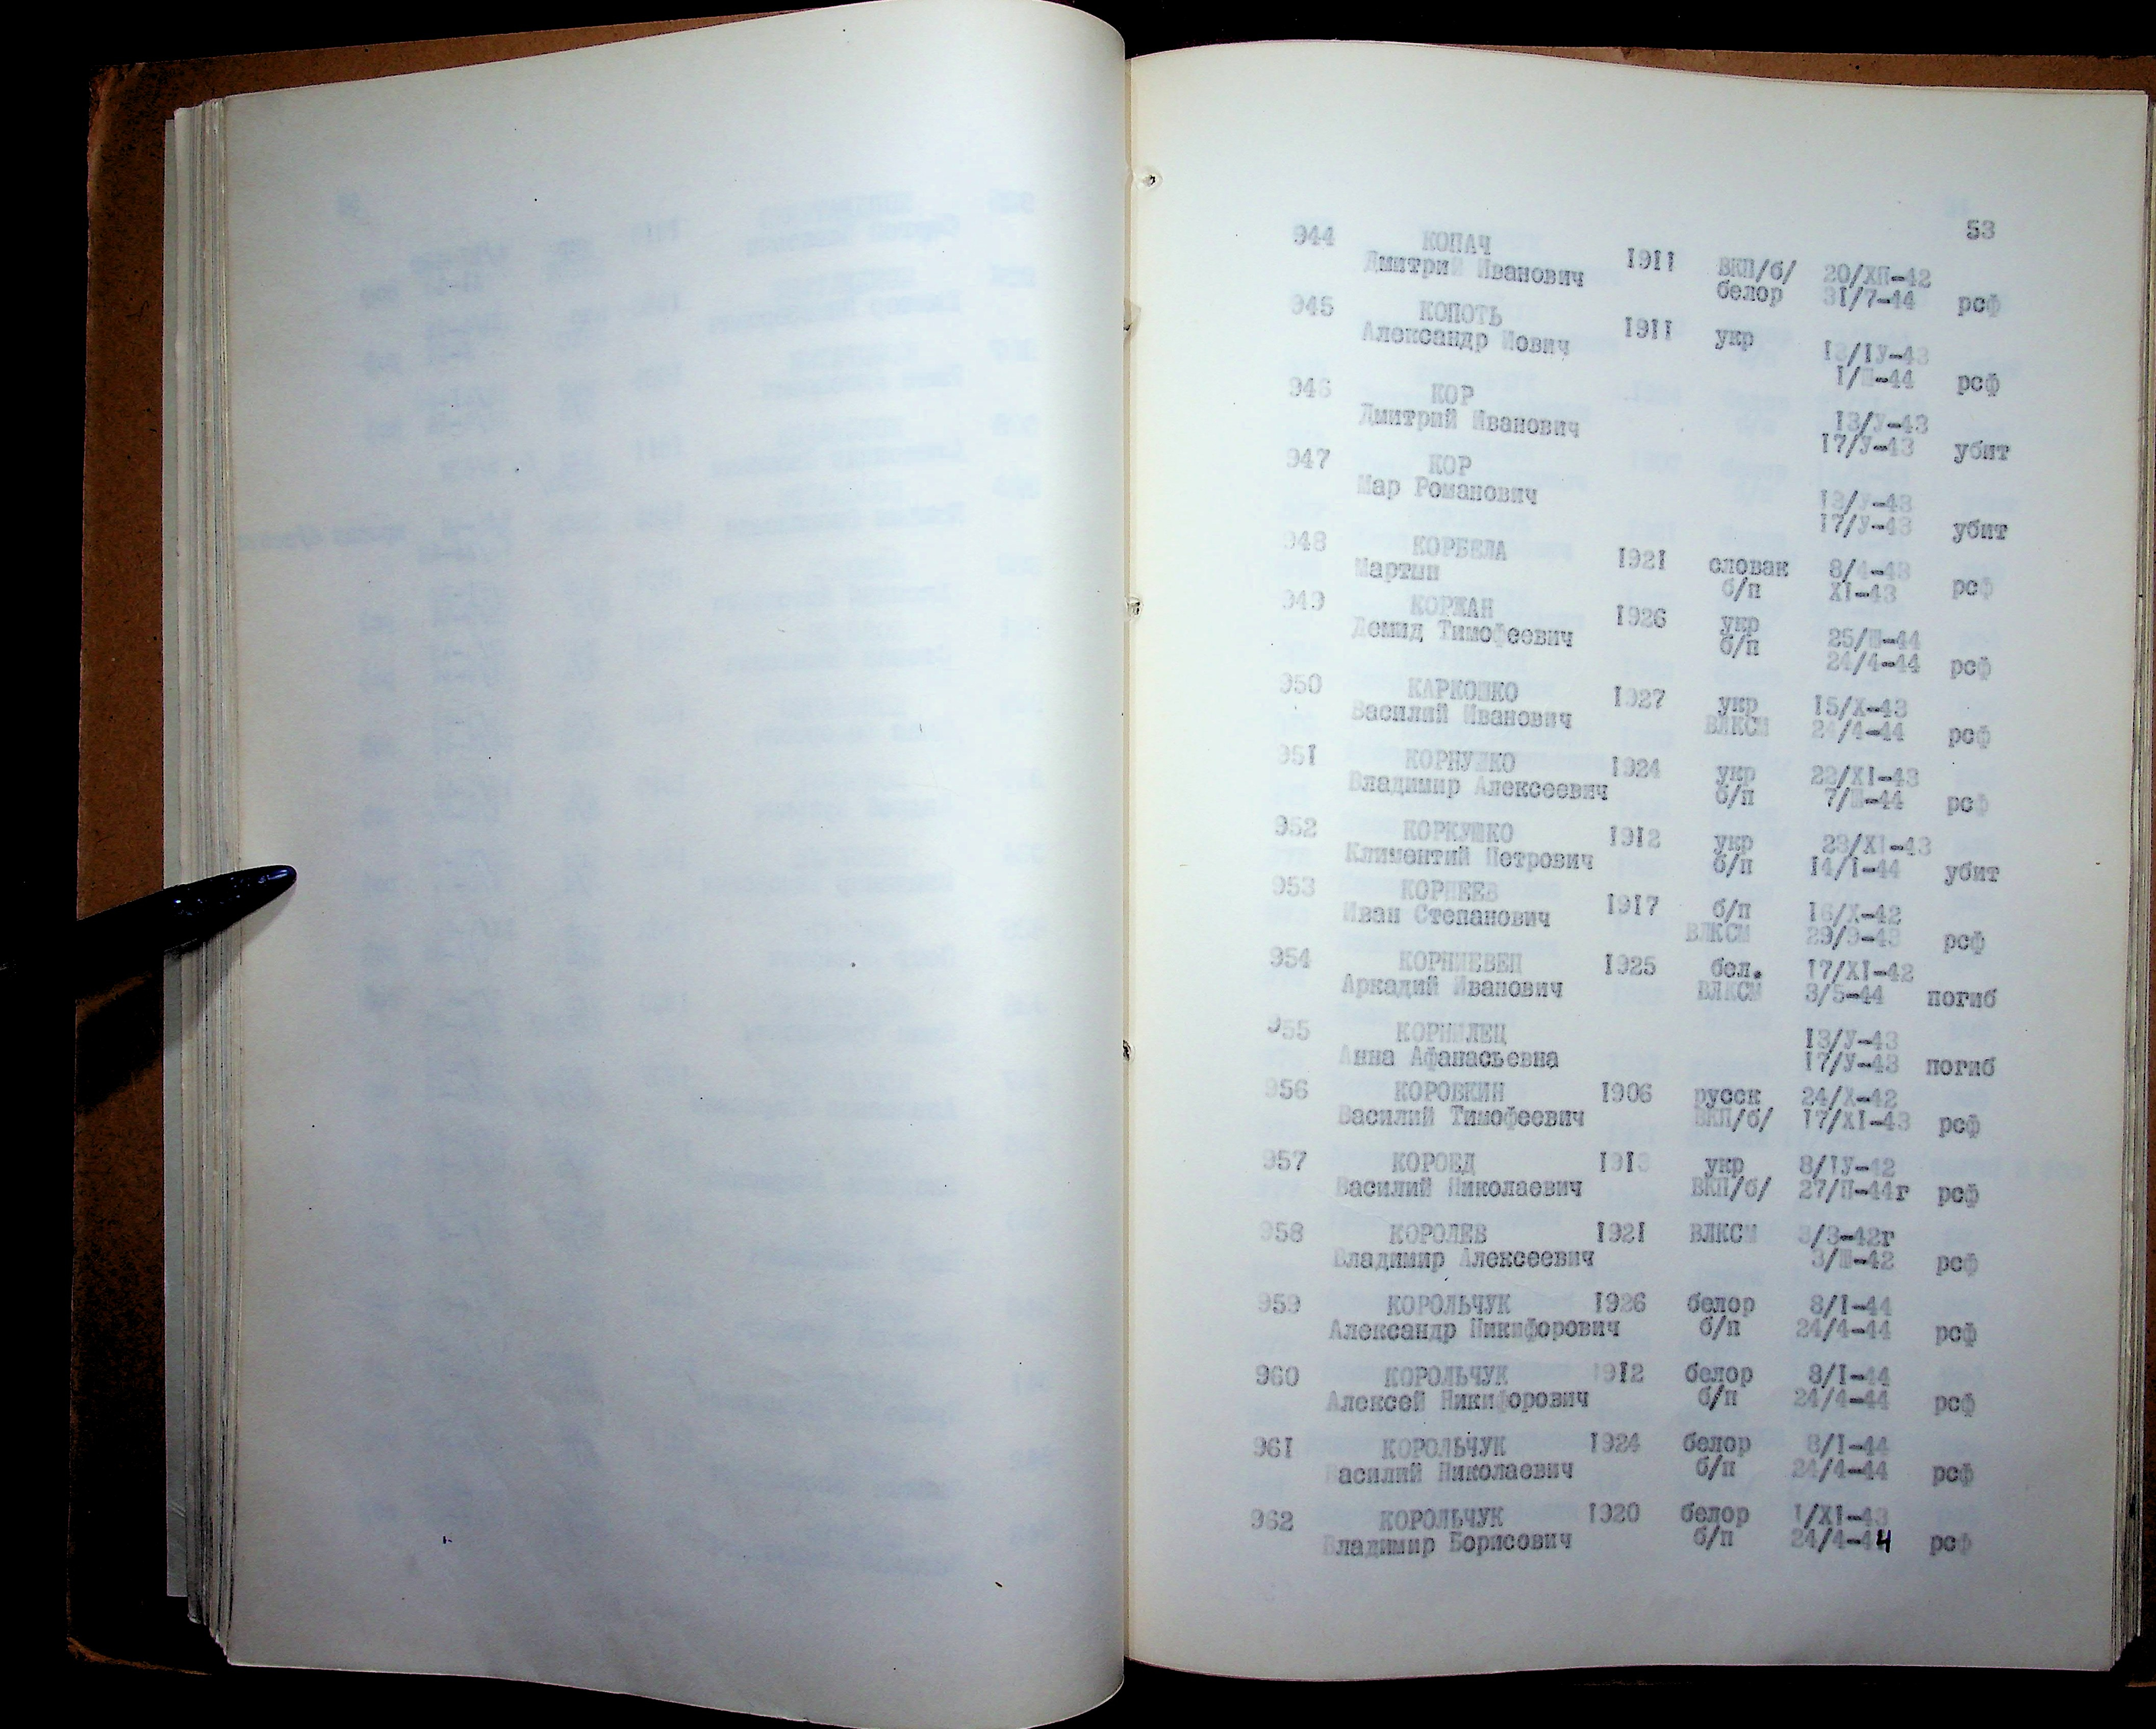 53
944 КОПАЧ 1911 ВКП/б/ 20/ХП-42
Дмитрий Иванович белор 31/7-44 рсф
945 КОПОТЬ 1911 укр 13/1У-43
Александр Иович 1/Ш-44 рсф
946 КОР 13/У-43
Дмитрий Иванович 17/У-43 убит
947 КОР 13/У-43
Мар Романович 17/У-43 убит
948 КОРБЕЛА 1921 словак 8/4-43
Мартын б/п XI-43 рсф
949 КОРЖАН 1926 укр 25/Ш-44
Демид Тимофеевич б/п 24/4-44 рсф
950 КАРКОШКО 1927 укр 15/Х-43
Василий Иванович ВЛКСМ 24/4-44 рсф
951 1924 укр 22/XI-43
Владимир Алексеевич б/п 7/Ш-44 рсф
952 КОРКУШКО 1912 укр 23/XI-43
Климентий Петрович б/п 14/1-44 убит
953 КОРНЕЕВ 1917 б/п 16/Х-42
Иван Степанович ВЛКСМ 29/9-43 рсф
954 1925 бел. 17/XI-42
Аркадий Иванович ВЛКСМ 3/5-44 погиб
955 КОРНИЛЕЦ 13/У-43
Анна Афанасьевна 17/У-43 погиб
956 КОРОВКИН 1906 русск 24/Х-42
Василий Тимофеевич ВКП/б/ 17/XI-43 рсф
957 КОРОЕД 1913 укр 8/1У-42
Василий Николаевич ВКП/б/ 27/П-44г рсф
958 КОРОЛЕВ 1921 ВЛКСМ 3/3-42г
Владимир Алексеевич 3/Ш-42 рсф
959 КОРОЛЬЧУК 1926 белор 8/1-44
Александр Никифорович б/п 24/4-44 рсф
960 КОРОЛЬЧУК 1912 белор 8/1-44
Алексей Никифорович б/п 24/4-44 рсф
961 КОРОЛЬЧУК 1924 белор 8/1-44
Василий Николаевич б/п 24/4-44 рсф
962 КОРОЛЬЧУК 1920 белор 1/XI-43
Владимир Борисович б/п 24/4-44 рсф